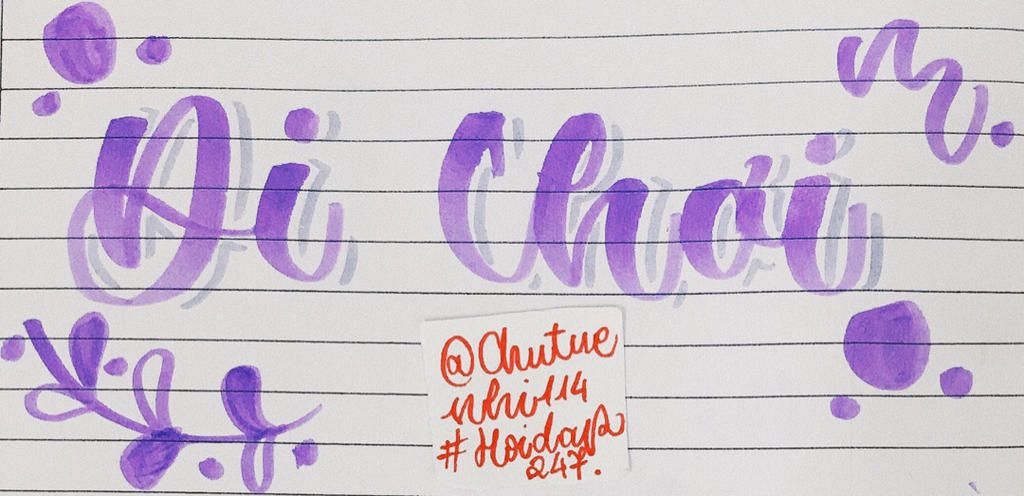 Đi Chơi
@Chutue
nhi114
#Hoidap
247.